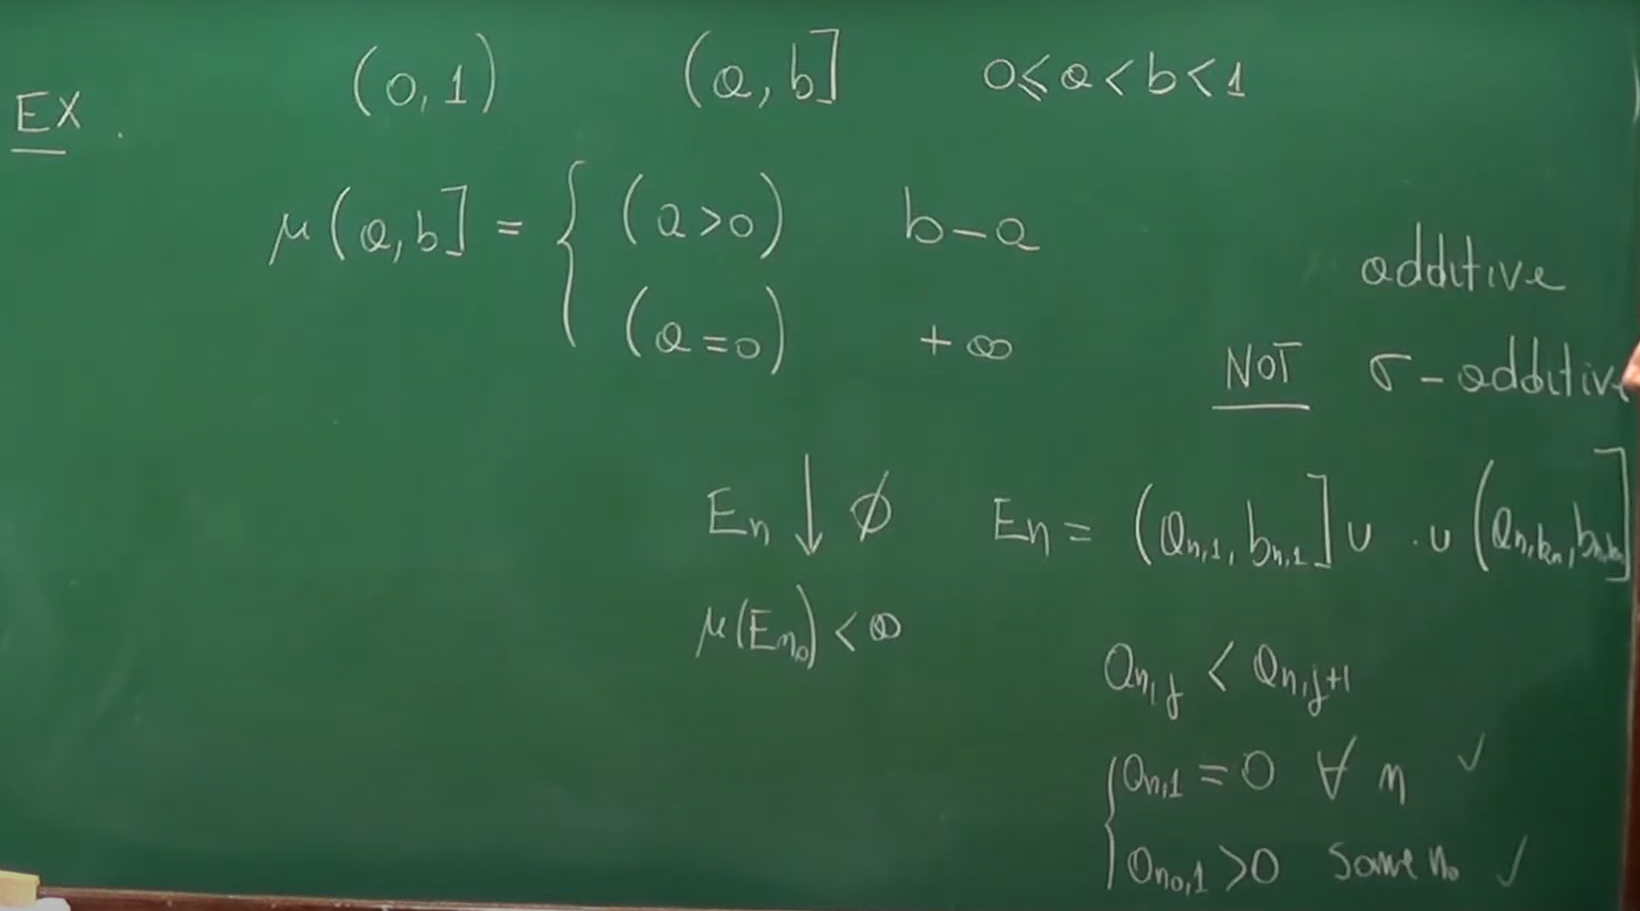 EX. (0,1) (a,b] 0≤a<b<1
μ(a,b] = { (a>0) b-a
(a=0) +∞
additive
NOT σ-additive
En ↓ ∅ En = (an,1, bn,1] ∪ .∪ (an,kn, bn,kn]
μ(En0) < ∞
an,j < an,j+1
{ an,1 = 0 ∀ n ✓
an0,1 > 0 some n0 ✓